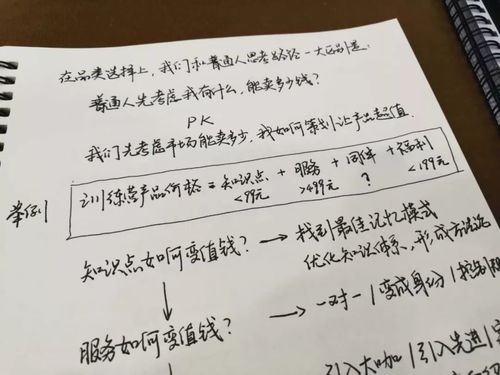 在品类选择上，我们和普通人思考路径一大区别是：
普通人先考虑我有什么，能卖多少钱？
PK
我们先考虑市场能卖多少，我如何策划让产品超值.
举例
训练营产品价格 = 知识点 + 服务 + 同伴 + 福利
<99元 >499元 ? <199元
知识点如何变值钱？ → 找到最佳记忆模式
优化知识体系、形成方法论
服务如何变值钱？ → 一对一 | 变成身份 |
引入大咖 | 引入先进 |